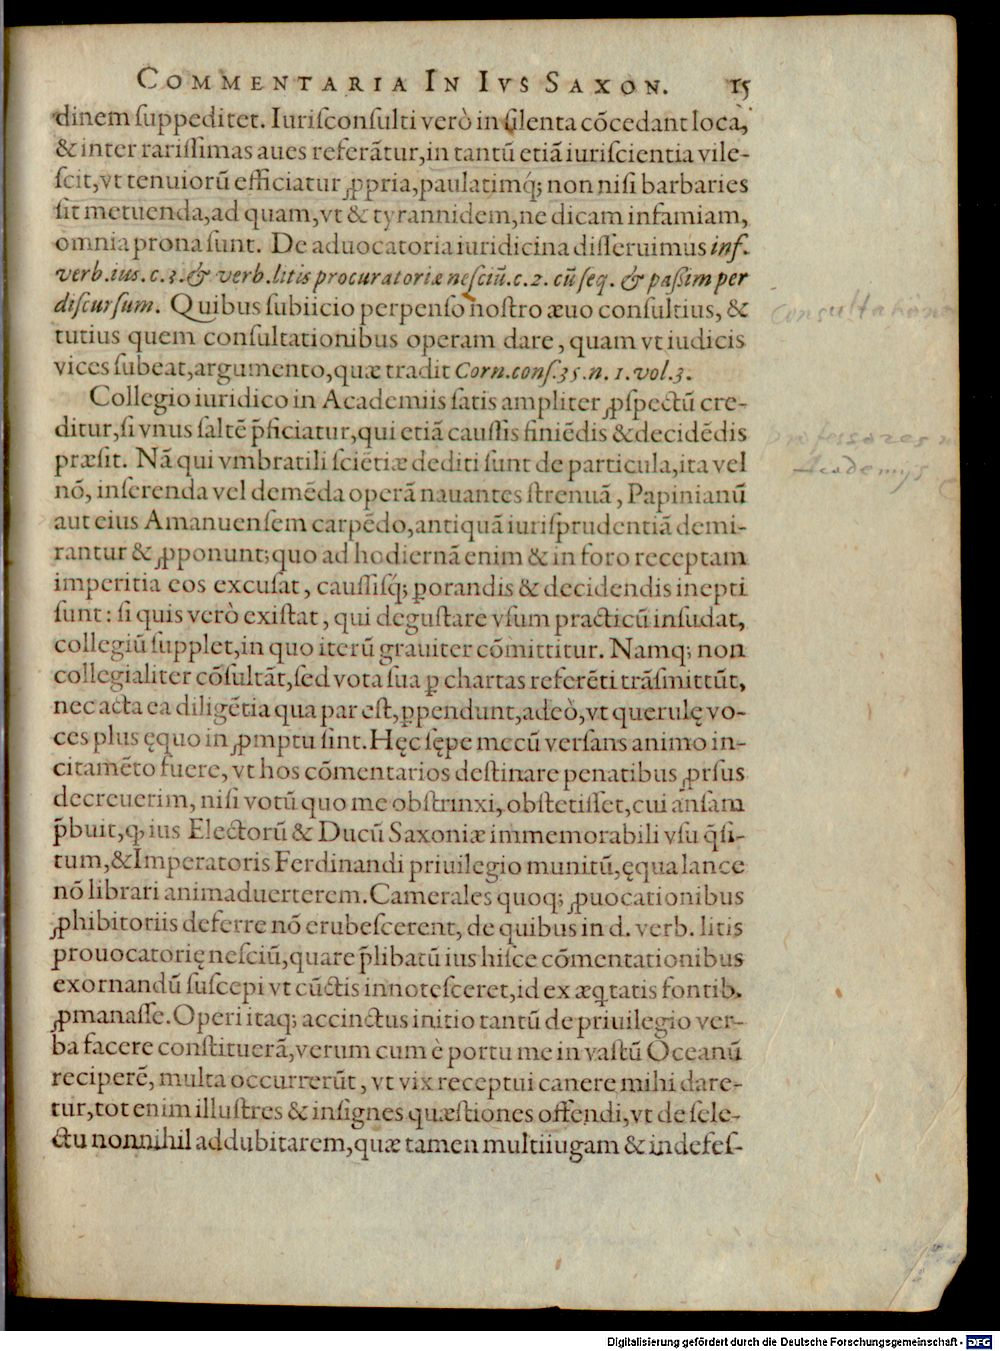 COMMENTARIA IN IVS SAXON. 15
dinem ſuppeditet. Iuriſconſulti verò in ſilenta cõcedant loca,
& inter rariſſimas aues referãtur, in tantũ etiã iuriſcientia vile-
ſcit, vt tenuiorũ efficiatur ꝓpria, paulatimq́; non niſi barbaries
ſit metuenda, ad quam, vt & tyrannidem, ne dicam infamiam,
omnia prona ſunt. De aduocatoria iuridicina diſſeruimus inf.
verb. ius. c. 3. & verb. litis procuratoriæ neſciũ. c. 2. cũ ſeq. & paßim per
diſcurſum. Quibus ſubiicio perpenſo noſtro æuo conſultius, &
tutius quem conſultationibus operam dare, quam vt iudicis
vices ſubeat, argumento, quæ tradit Corn. conſ. 35. n. 1. vol. 3.
Collegio iuridico in Academiis ſatis ampliter ꝓſpectũ cre-
ditur, ſi vnus ſaltẽ p̃ficiatur, qui etiã cauſſis finiẽdis & decidẽdis
præſit. Nã qui vmbratili ſciẽtiæ dediti ſunt de particula, ita vel
nõ, inſerenda vel demẽda operã nauantes ſtrenuã, Papinianũ
aut eius Amanuenſem carpẽdo, antiquã iuriſprudentiã demi-
rantur & ꝓponunt; quo ad hodiernã enim & in foro receptam
imperitia eos excuſat, cauſſiſq́; ꝑorandis & decidendis inepti
ſunt: ſi quis verò exiſtat, qui deguſtare vſum practicũ inſudat,
collegiũ ſupplet, in quo iterũ grauiter cõmittitur. Namq; non
collegialiter cõſultãt, ſed vota ſua ꝑ chartas referẽti trãſmittũt,
nec acta ea diligẽtia qua par eſt, ꝑpendunt, adeò, vt querulę vo-
ces plus ęquo in ꝓmptu ſint. Hęc ſępe mecũ verſans animo in-
citamẽto fuere, vt hos cõmentarios deſtinare penatibus ꝓrſus
decreuerim, niſi votũ quo me obſtrinxi, obſtetiſſet, cui anſam
p̃buit, ꝙ ius Electorũ & Ducũ Saxoniæ immemorabili vſu q̃ſi-
tum, & Imperatoris Ferdinandi priuilegio munitũ, ęqua lance
nõ librari animaduerterem. Camerales quoq; ꝓuocationibus
ꝓhibitoriis deferre nõ erubeſcerent, de quibus in d. verb. litis
prouocatorię neſciũ, quare p̃libatũ ius hiſce cõmentationibus
exornandũ ſuſcepi vt cũctis innoteſceret, id ex æq̃tatis fontib.
ꝓmanaſſe. Operi itaq; accinctus initio tantũ de priuilegio ver-
ba facere conſtituerã, verum cum è portu me in vaſtũ Oceanũ
reciperẽ, multa occurrerũt, vt vix receptui canere mihi dare-
tur, tot enim illuſtres & inſignes quæſtiones offendi, vt de ſele-
ctu nonnihil addubitarem, quæ tamen multiiugam & indefeſ-
Professores in
Academijs
Digitalisierung gefördert durch die Deutsche Forschungsgemeinschaft - DFG